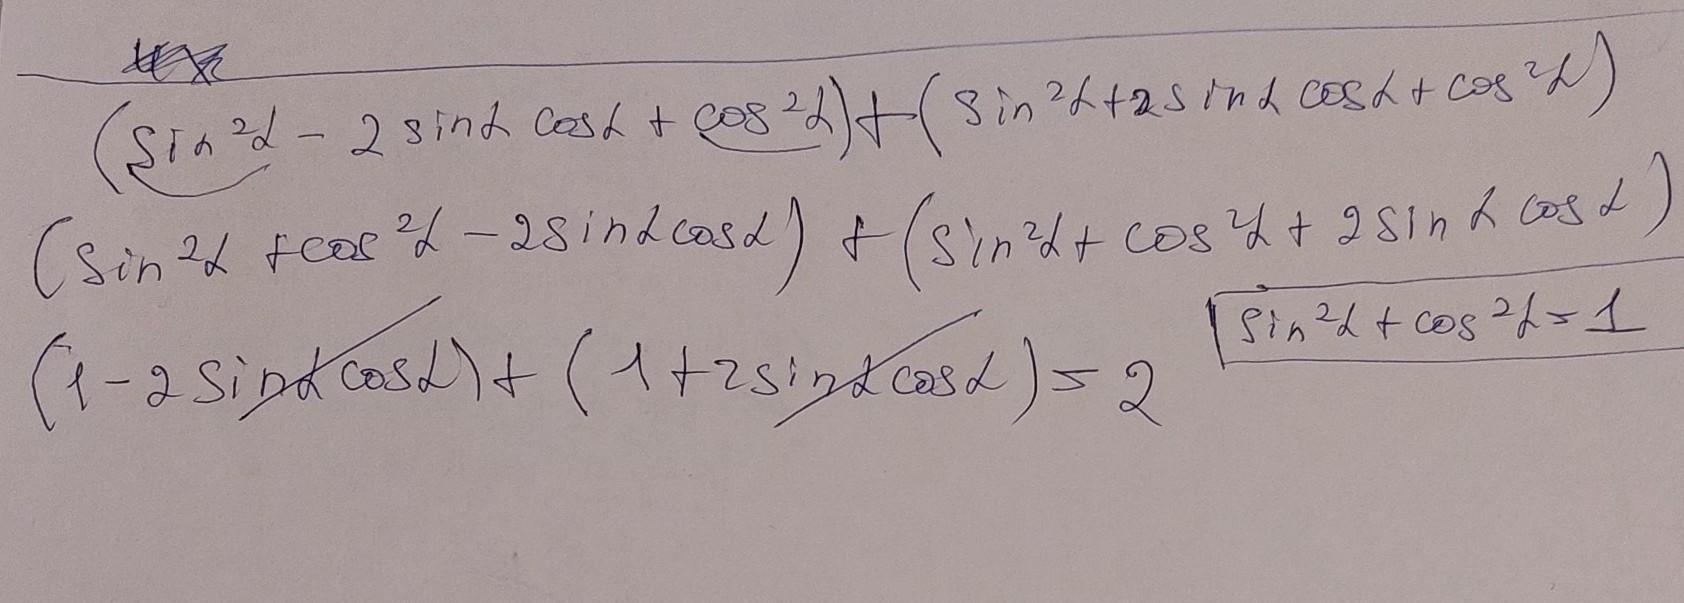 (sin²α - 2 sinα cosα + cos²α) + (sin²α + 2 sinα cosα + cos²α)
(sin²α + cos²α - 2 sinα cosα) + (sin²α + cos²α + 2 sinα cosα)
sin²α + cos²α = 1
(1 - 2 sinα cosα) + (1 + 2 sinα cosα) = 2